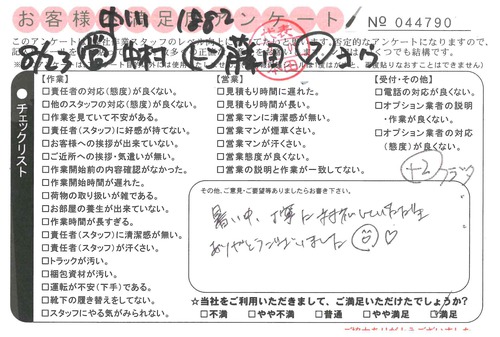 お客様 足 アンケート！
No 044790
中川 1882
【作業】
□責任者の対応(態度)が良くない。
□他のスタッフの対応(態度)が良くない。
□作業を見ていて不安がある。
□責任者(スタッフ)に好感が持てない。
□お客様への挨拶が出来ていない。
□ご近所への挨拶・気遣いが無い。
□作業開始前の内容確認がなかった。
□作業開始時間が遅れた。
□荷物の取り扱いが雑である。
□お部屋の養生が出来ていない。
□作業時間が長すぎる。
□責任者(スタッフ)に清潔感が無い。
□責任者(スタッフ)が汗くさい。
□トラックが汚い。
□梱包資材が汚い。
□運転が不安(下手)である。
□靴下の履き替えをしてない。
□スタッフにやる気がみられない。
【営業】
□見積もり時間に遅れた。
□見積もり時間が長い。
□営業マンに清潔感が無い。
□営業マンが煙草くさい。
□営業マンが汗くさい。
□営業態度が良くない。
□営業の説明と作業が一致してない。
【受付・その他】
□電話の対応が良くない。
□オプション業者の説明
・作業が良くない。
□オプション業者の対応
(態度)が良くない。
チェックリスト
その他、ご意見・ご要望等ありましたらお書き下さい。
暑い中、丁寧に対応していただき
ありがとうございました ♡
☆当社をご利用いただきまして、ご満足いただけたでしょうか?
□不満 □やや不満 □普通 □やや満足 □満足